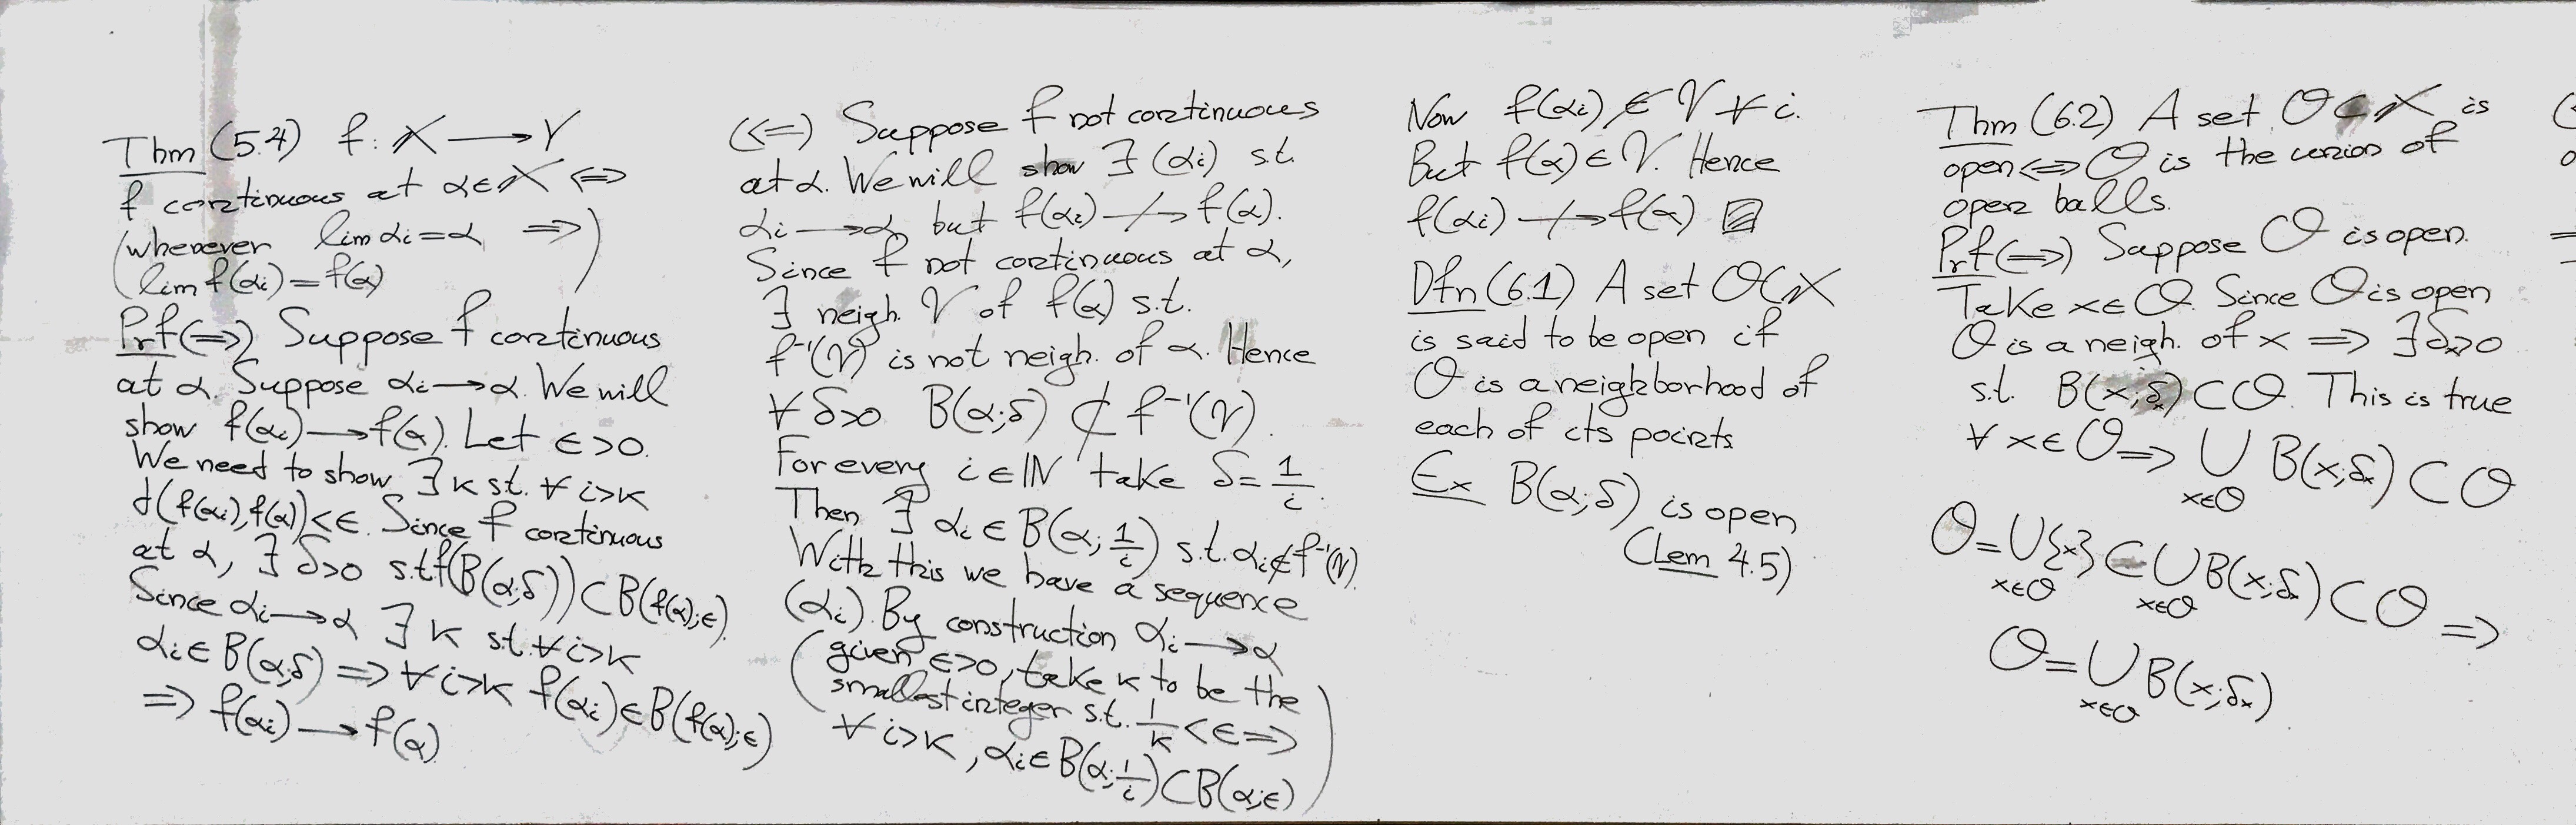 Thm (5.4) f: X ⟶ Y
f continuous at α∈X ⟺
(whenever lim αᵢ=α ⟹
lim f(αᵢ)=f(α))
Prf(⟹) Suppose f continuous
at α. Suppose αᵢ⟶α. We will
show f(αᵢ)⟶f(α). Let ϵ>0.
We need to show ∃ K s.t. ∀ i>K
d(f(αᵢ),f(α))<ϵ. Since f continuous
at α, ∃ δ>0 s.t. f(B(α;δ))⊂B(f(α);ϵ).
Since αᵢ⟶α ∃ K s.t. ∀ i>K
αᵢ∈B(α;δ) ⟹ ∀ i>K f(αᵢ)∈B(f(α);ϵ)
⟹ f(αᵢ)⟶f(α)
(⟸) Suppose f not continuous
at α. We will show ∃ (αᵢ) s.t.
αᵢ⟶α but f(αᵢ)-/->f(α).
Since f not continuous at α,
∃ neigh. V of f(α) s.t.
f⁻¹(V) is not neigh. of α. Hence
∀ δ>0 B(α;δ) ⊄ f⁻¹(V).
For every i∈ℕ take δ=1/i.
Then ∃ αᵢ∈B(α;1/i) s.t. αᵢ∉f⁻¹(V)
With this we have a sequence
(αᵢ). By construction αᵢ⟶α
(given ϵ>0, take K to be the
smallest integer s.t. 1/K<ϵ ⟹
∀ i>K, αᵢ∈B(α;1/i)⊂B(α;ϵ))
Now f(αᵢ)∉V ∀ i.
But f(α)∈V. Hence
f(αᵢ)-/->f(α) ▨
Dfn(6.1) A set O⊂X
is said to be open if
O is a neighborhood of
each of its points
Ex B(α;δ) is open
(Lem 4.5)
Thm (6.2) A set O⊂X is
open⟺O is the union of
open balls.
Prf(⟹) Suppose O is open.
Take x∈O. Since O is open
O is a neigh. of x ⟹ ∃δₓ>0
s.t. B(x;δₓ)⊂O. This is true
∀ x∈O ⟹ ∪ B(x;δₓ)⊂O
x∈O
O=∪{x}⊂∪B(x;δₓ)⊂O ⟹
x∈O x∈O
O=∪B(x;δₓ)
x∈O